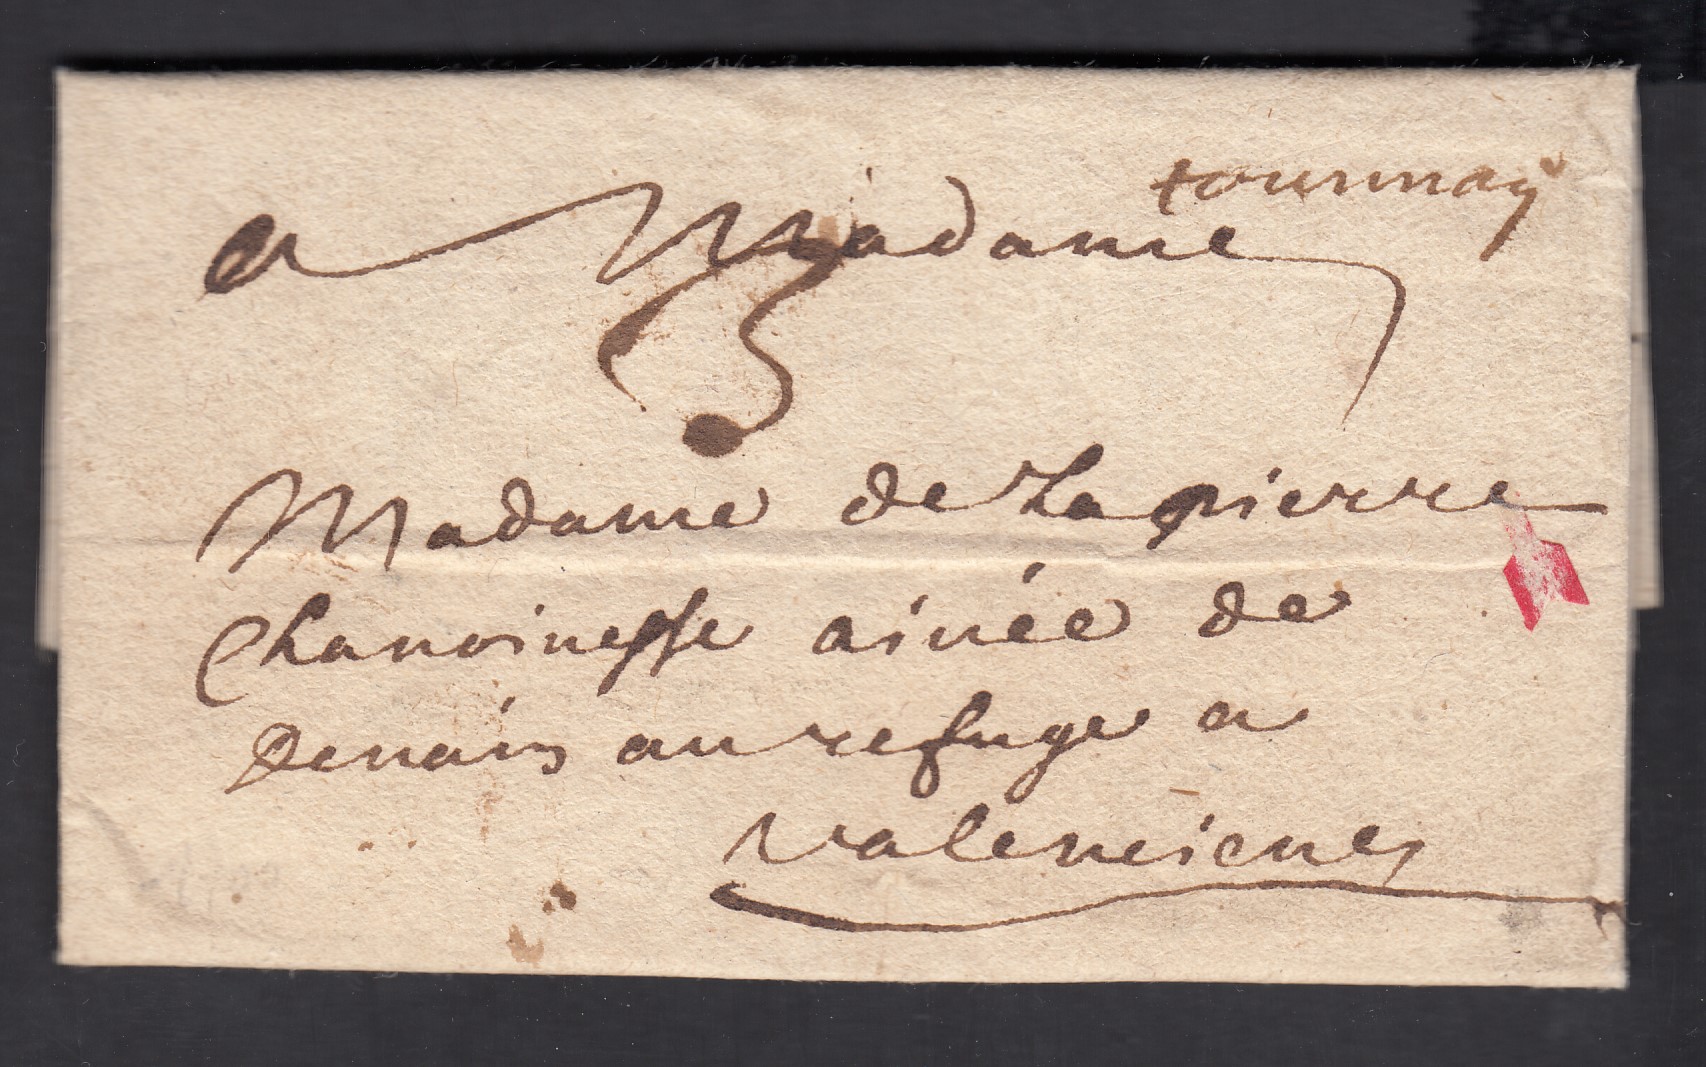 tournay
a Madame
3
Madame de La pierre
Chanoinesse ainée de
Denain au refuge a
valencienes